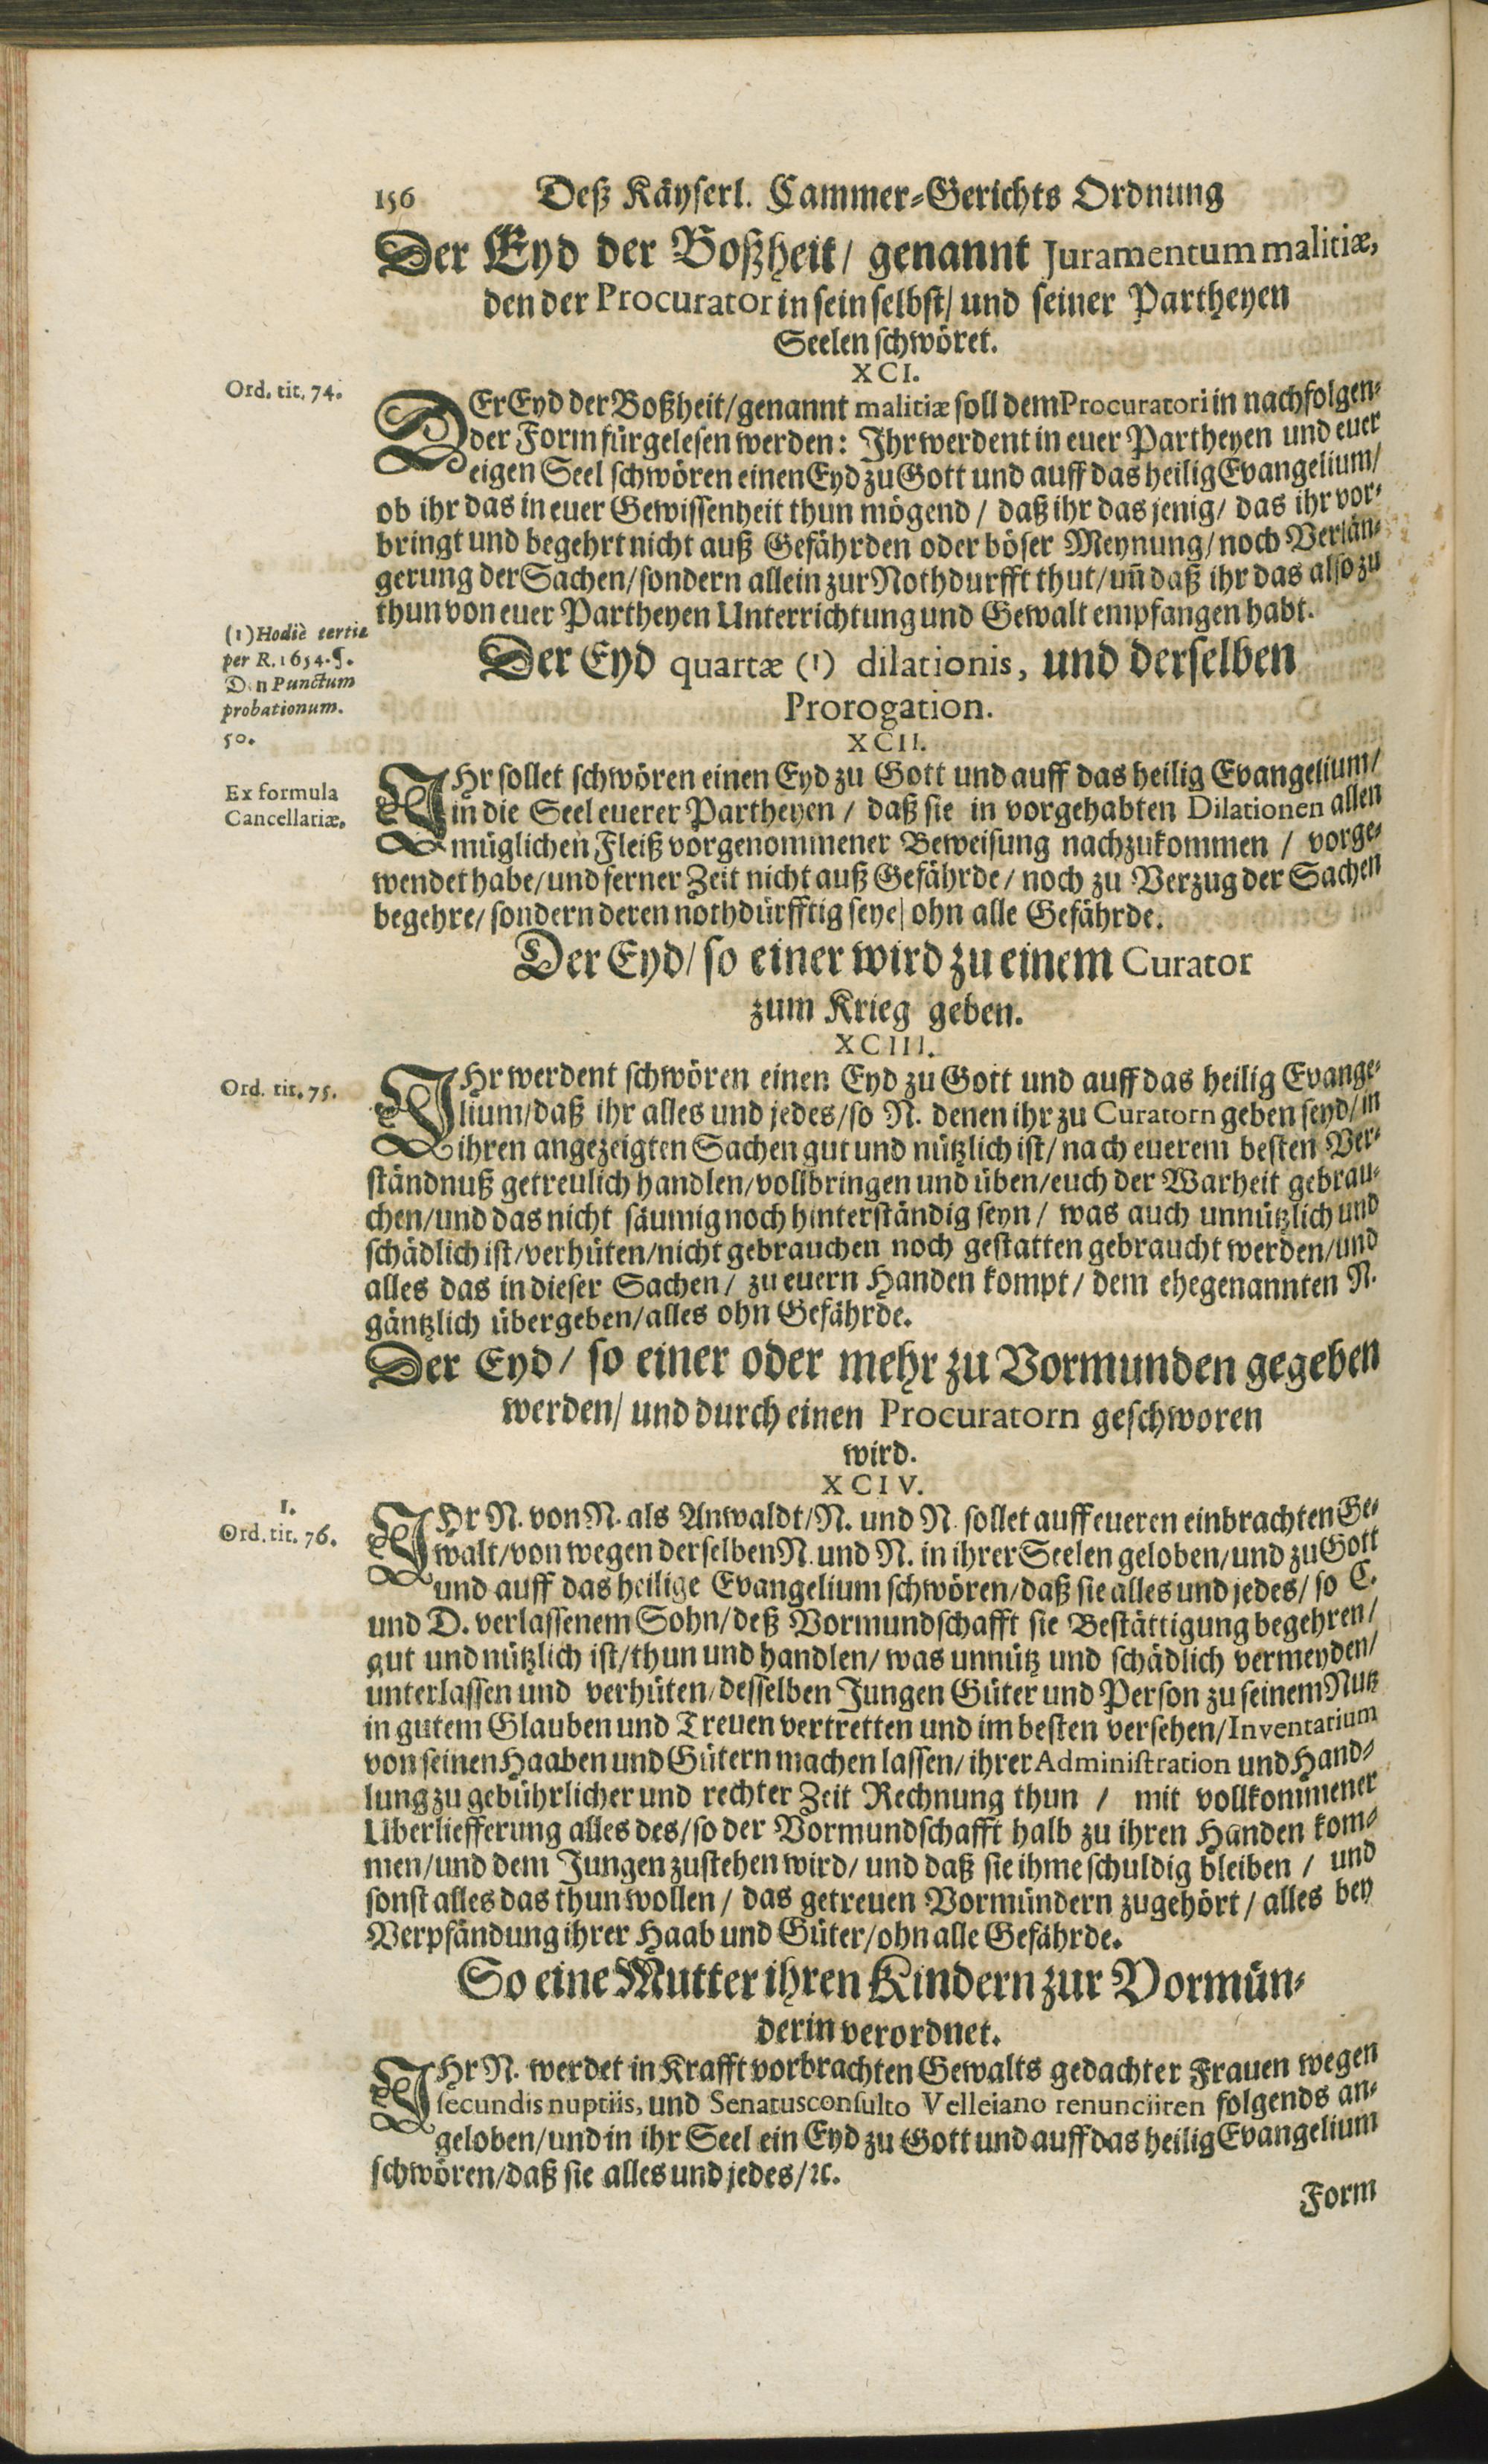 156 Deß Käyserl. Cammer-Gerichts Ordnung
Der Eyd der Boßheit/ genannt Juramentum malitiæ,
den der Procurator in sein selbst/ und seiner Partheyen
Seelen schwöret.
XCI.
Ord. tit. 74.
DEr Eyd der Boßheit/genannt malitiæ soll dem Procuratori in nachfolgen-
der Form fürgelesen werden: Ihr werdent in euer Partheyen und euer
eigen Seel schwören einen Eyd zu Gott und auff das heilig Evangelium/
ob ihr das in euer Gewissenheit thun mögend / daß ihr das jenig/ das ihr vor-
bringt und begehrt nicht auß Gefährden oder böser Meynung/ noch Verlän-
gerung der Sachen/sondern allein zur Nothdurfft thut/uñ daß ihr das also zu
thun von euer Partheyen Unterrichtung und Gewalt empfangen habt.
(1) Hodiè tertiæ
per R. 1654. ¶.
D n Punctum
probationum.
50.
Der Eyd quartæ (1) dilationis, und derselben
Prorogation.
XCII.
Ex formula
Cancellariæ.
IHr sollet schwören einen Eyd zu Gott und auff das heilig Evangelium/
in die Seel euerer Partheyen / daß sie in vorgehabten Dilationen allen
müglichen Fleiß vorgenommener Beweisung nachzukommen / vorge-
wendet habe/und ferner Zeit nicht auß Gefährde/ noch zu Verzug der Sachen
begehre/ sondern deren nothdürfftig seye/ ohn alle Gefährde.
Der Eyd/ so einer wird zu einem Curator
zum Krieg geben.
XCIII.
Ord. tit. 75.
IHr werdent schwören einen Eyd zu Gott und auff das heilig Evange-
lium/daß ihr alles und jedes/so N. denen ihr zu Curatorn geben seyd/in
ihren angezeigten Sachen gut und nützlich ist/ nach euerem besten Ver-
ständnuß getreulich handlen/vollbringen und üben/euch der Warheit gebrau-
chen/und das nicht säumig noch hinterständig seyn / was auch unnützlich und
schädlich ist/verhüten/nicht gebrauchen noch gestatten gebraucht werden/und
alles das in dieser Sachen / zu euern Handen kompt/ dem ehegenannten N.
gäntzlich übergeben/alles ohn Gefährde.
Der Eyd/ so einer oder mehr zu Vormunden gegeben
werden/ und durch einen Procuratorn geschworen
wird.
XCIV.
1.
Ord. tit. 76.
IHr N. von N. als Anwaldt/N. und N. sollet auff eueren einbrachten Ge-
walt/von wegen derselben N. und N. in ihrer Seelen geloben/und zu Gott
und auff das heilige Evangelium schwören/daß sie alles und jedes/ so C.
und D. verlassenem Sohn/deß Vormundschafft sie Bestättigung begehren/
gut und nützlich ist/thun und handlen/ was unnütz und schädlich vermeyden/
unterlassen und verhüten/desselben Jungen Güter und Person zu seinem Nutz
in gutem Glauben und Treuen vertretten und im besten versehen/Inventarium
von seinen Haaben und Gütern machen lassen/ ihrer Administration und Hand-
lung zu gebührlicher und rechter Zeit Rechnung thun / mit vollkommener
Uberliefferung alles des/so der Vormundschafft halb zu ihren Handen kom-
men/und dem Jungen zustehen wird/ und daß sie ihme schuldig bleiben / und
sonst alles das thun wollen / das getreuen Vormündern zugehört/ alles bey
Verpfändung ihrer Haab und Güter/ohn alle Gefährde.
So eine Mutter ihren Kindern zur Vormün-
derin verordnet.
IHr N. werdet in Krafft vorbrachten Gewalts gedachter Frauen wegen
secundis nuptiis, und Senatusconsulto Velleiano renunciiren folgends an-
geloben/und in ihr Seel ein Eyd zu Gott und auff das heilig Evangelium
schwören/daß sie alles und jedes/ꝛc.
Form